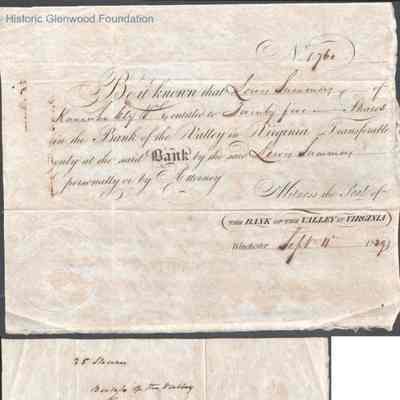 Historic Glenwood Foundation
No. 1760
Be it known that Lewis Summers of
Kanawha is entitled to Twenty five Shares
in the Bank of the Valley in Virginia Transferable
only at the said Bank by the said Lewis Summers
personally or by Attorney
Witness the Seal of
THE BANK OF THE VALLEY IN VIRGINIA
Winchester Sept 11 1829
25 Shares
of the Valley